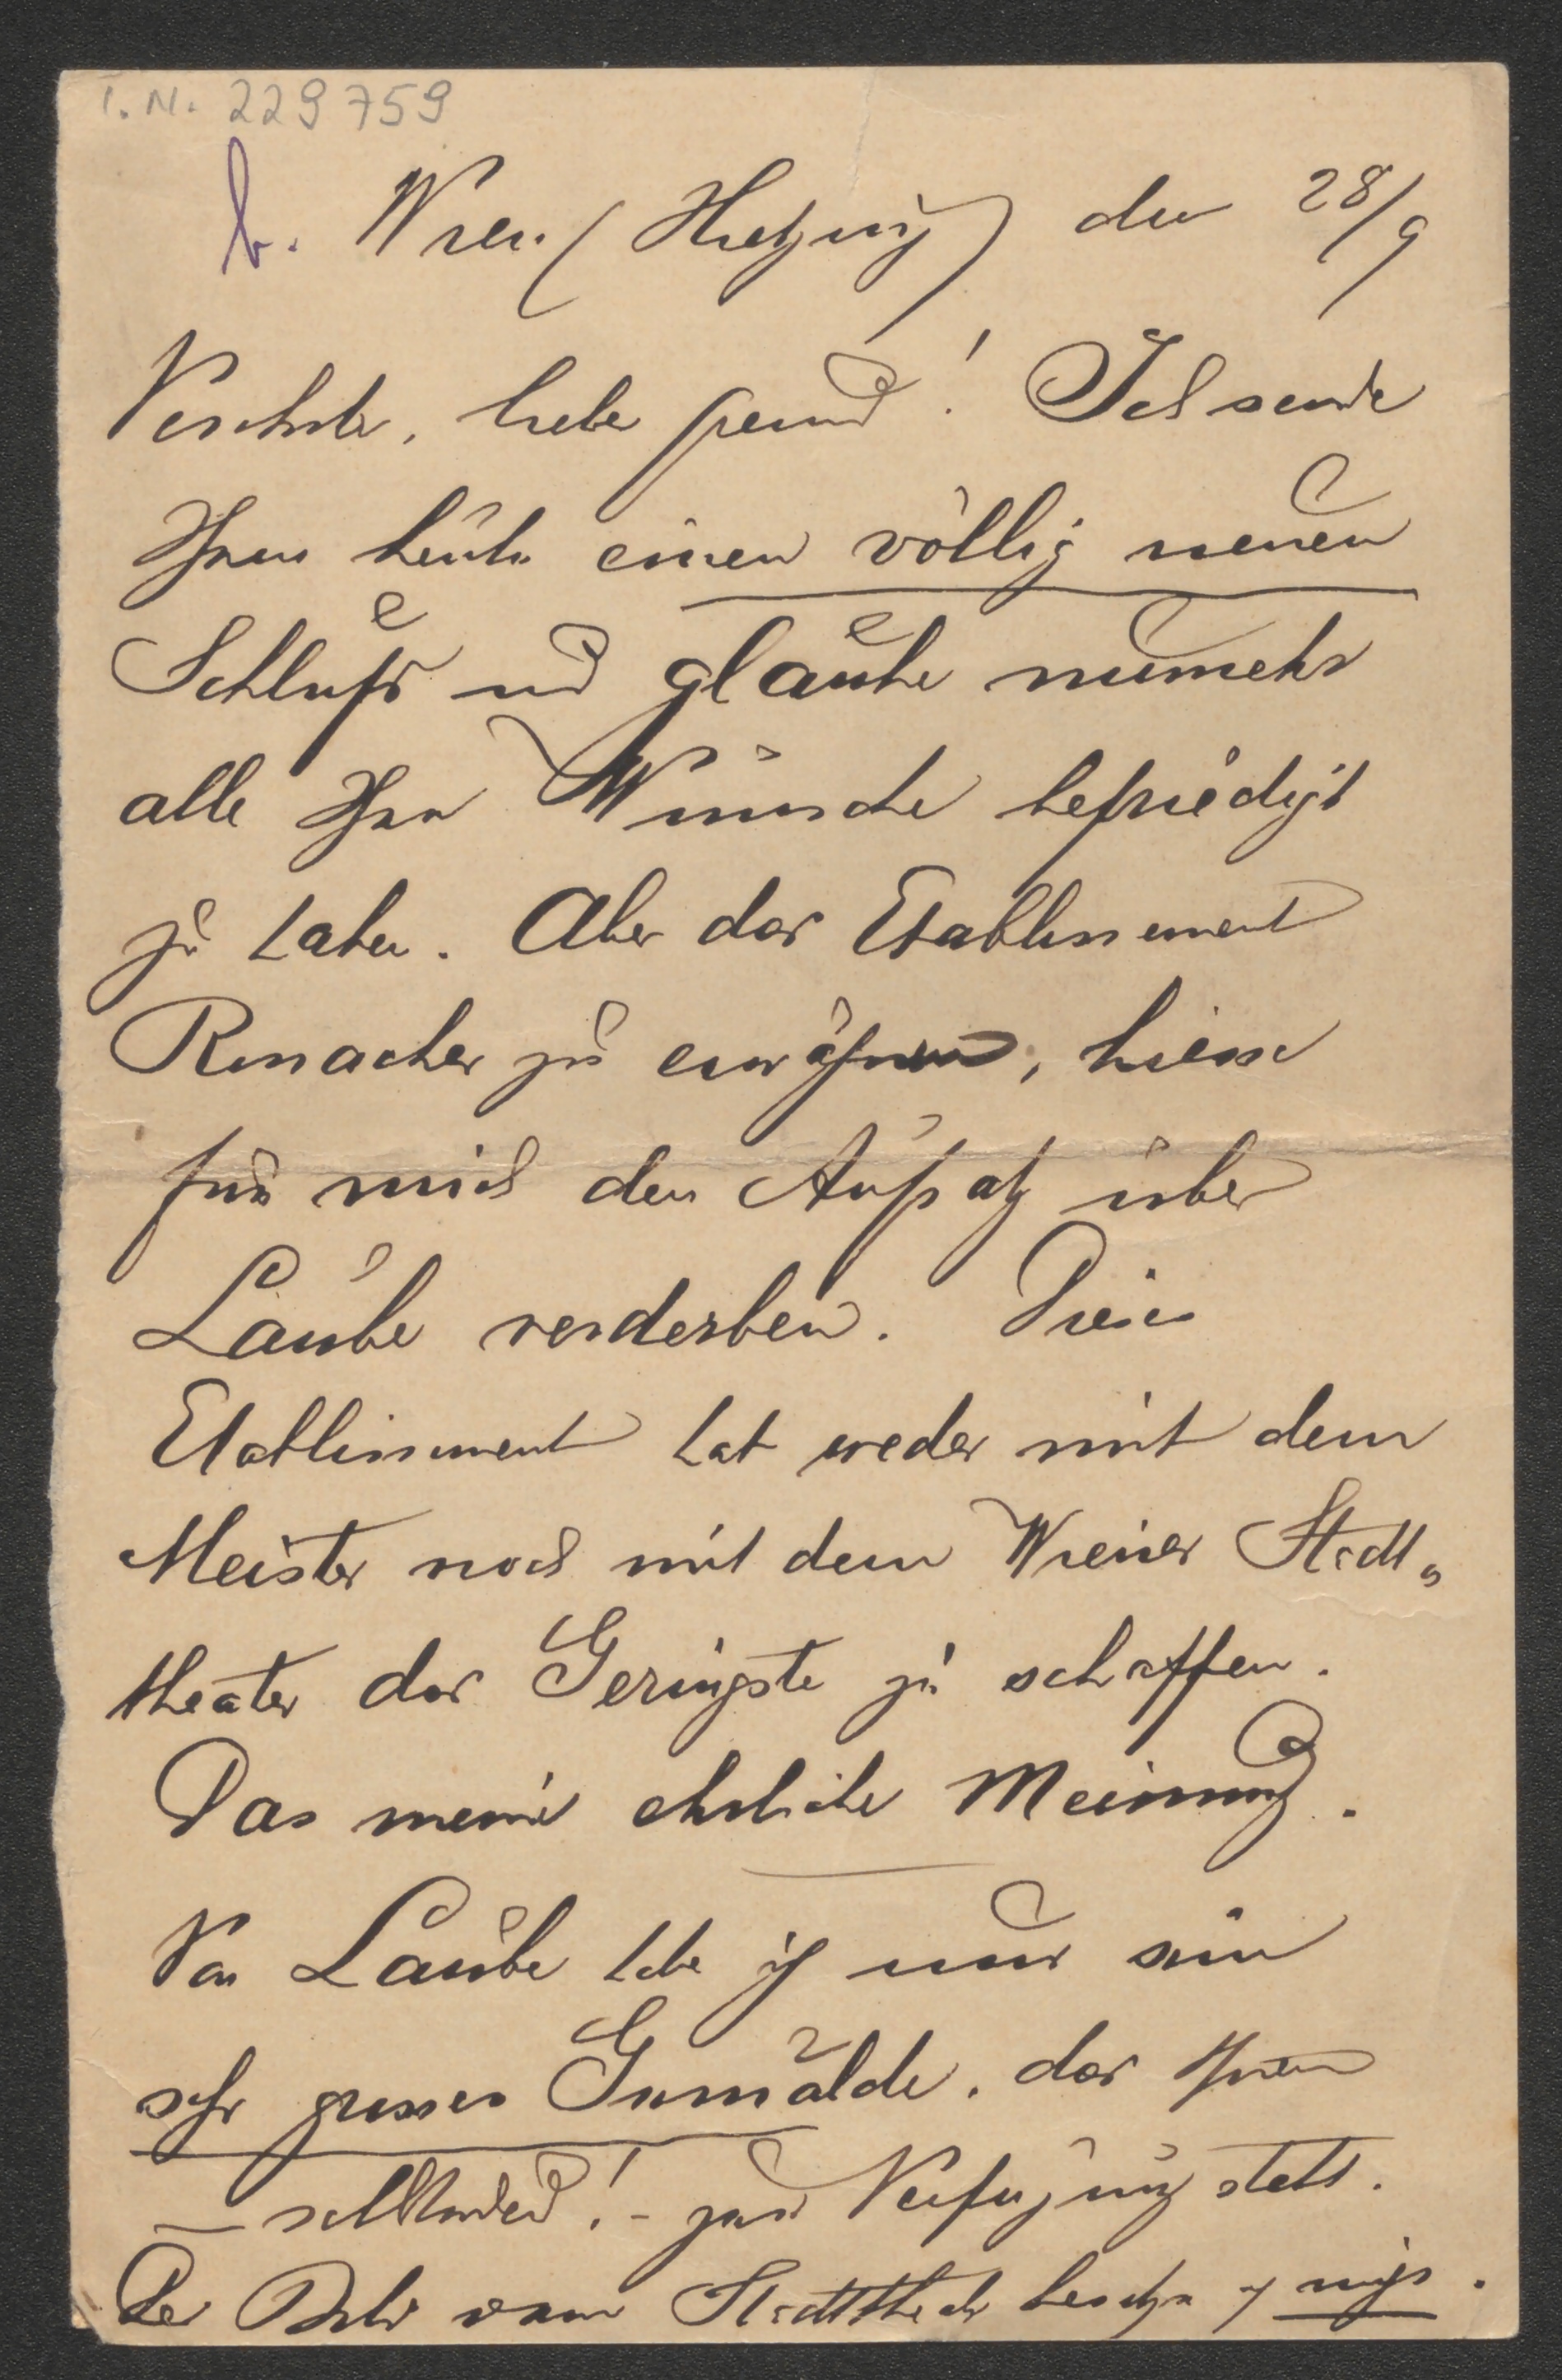 I.N. 229759
b. Wien (Hietzing) den 28/9
Verehrter, lieber Freund! Ich sende
Ihnen heute einen völlig neuen
Schluß und glaube nunmehr
alle Ihre Wünsche befriedigt
zu haben. Aber das Etablissement
Ronacher zu erwähnen, hiesse
für mich den Aufsatz über
Laube verderben. Dieses
Etablissement hat weder mit dem
Meister noch mit dem Wiener Stadt-
theater das Geringste zu schaffen.
Das meine ehrliche Meinung.
Von Laube habe ich nur ein
sehr grosses Gemälde, das Ihnen
– ! – zur Verfügung steht.
Bilder vom Stadttheater besitze ich nicht.